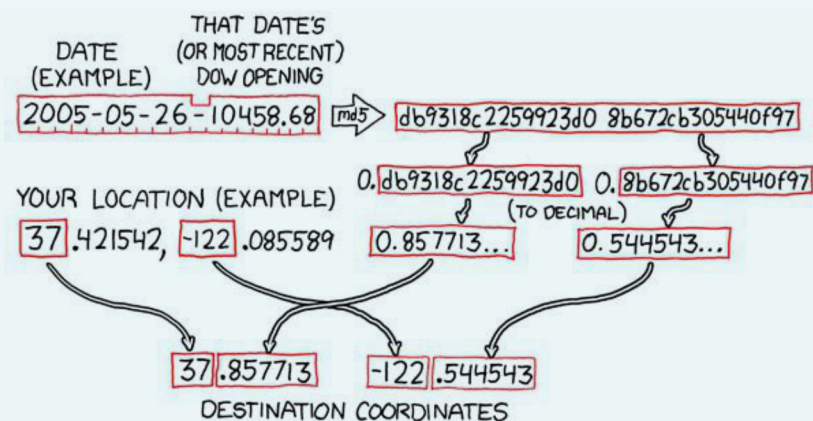 DATE
(EXAMPLE)
THAT DATE'S
(OR MOST RECENT)
DOW OPENING
2005-05-26-10458.68
md5
db9318c2259923d0 8b672cb305440f97
0.db9318c2259923d0 0.8b672cb305440f97
(TO DECIMAL)
YOUR LOCATION (EXAMPLE)
37.421542, -122.085589
0.857713... 0.544543...
37.857713 -122.544543
DESTINATION COORDINATES